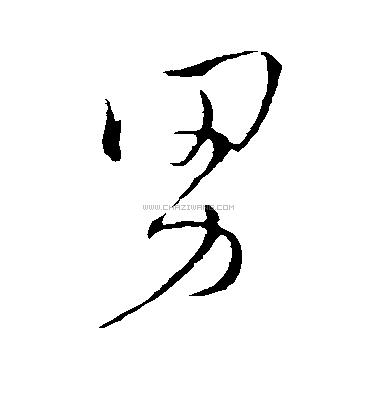 男
WWW.CHAZIWANG.COM